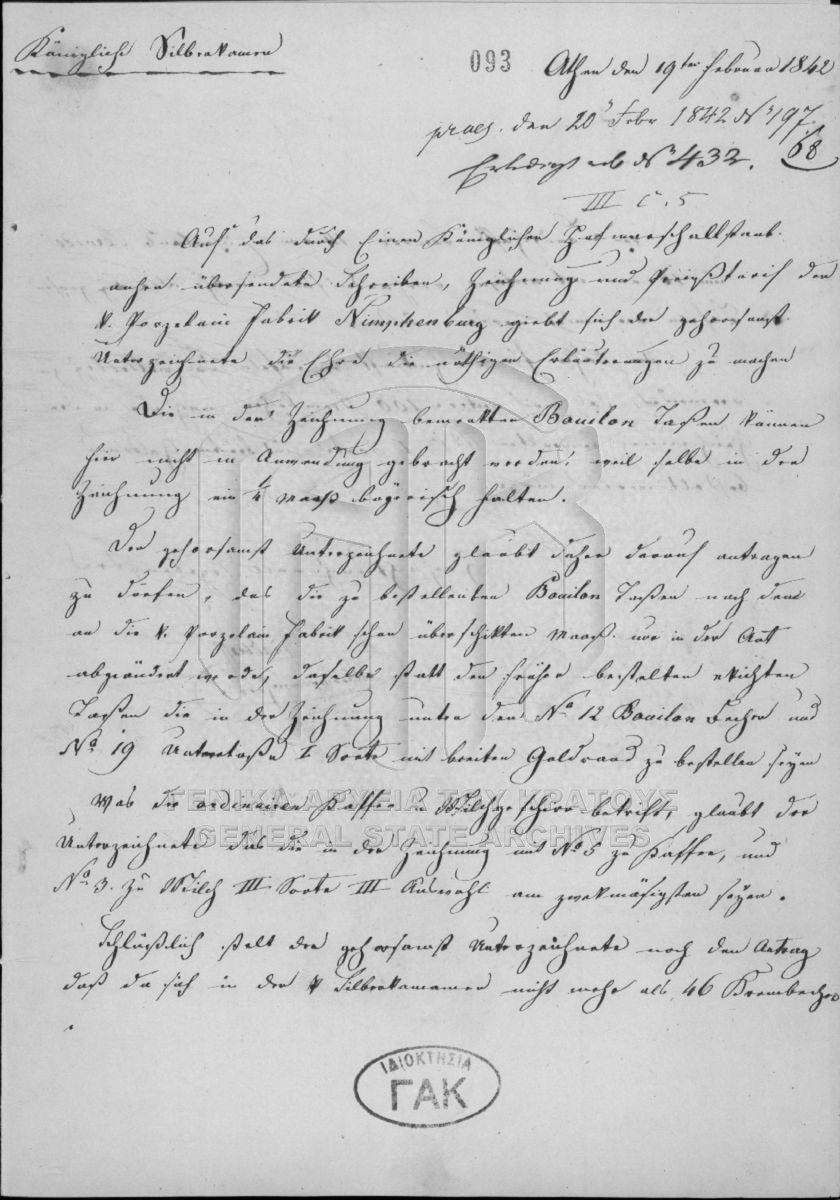 Königliche Silberkamer
093
Athen den 19ten Februar 1842
praes. den 20 Febr 1842 Nr 197.
68
Erledigt sub Nr 432.
III C. 5
Auf das durch Einen Königlichen Hofmarschallstaab
anher übersendete Schreiben, Zeichnung und Preißtarif der
k. Porzelain Fabrik Nimphenburg giebt sich der gehorsamst
Unterzeichnete die Ehre die nöthigen Erläuterungen zu machen
Die in der Zeichnung bemerkten Bouilon Taßen können
hier nicht in Anwendung gebracht werden, weil selbe in der
Zeichnung ein 1/4 Maaß bayerisch halten.
Der gehorsamst Unterzeichnete glaubt daher darauf antragen
zu dörfen, das die zu bestellenten Bouilon Taßen nach dem
an die k. Porzelain Fabrik schon überschikten Maaß nur in der Art
abgeändert werde, daselbe statt den früher bestelten
Taßen die in der Zeichnung unter den No 12 Bouilon Becher und
No 19 Untertaße I Sorte mit breiten Goldrand zu bestellen seyen
Was die ordinairen Kaffee u Milchgeschirr betrift, glaubt der
Unterzeichnete das die in der Zeichnung mit No 5 zu Kaffee, und
No 3. zu Milch III Sorte III Auswahl am zwekmäsigsten seyen.
Schlüßlich stelt der gehorsamst Unterzeichnete noch den Antrag
daß da sich in der k Silberkamer nicht mehr als 46 Krembecher
ΓΕΝΙΚΑ ΑΡΧΕΙΑ ΤΟΥ ΚΡΑΤΟΥΣ
GENERAL STATE ARCHIVES
ΙΔΙΟΚΤΗΣΙΑ
ΓΑΚ